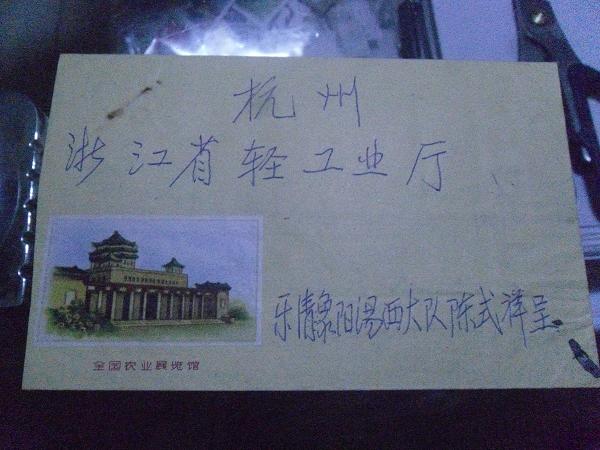 杭州
浙江省轻工业厅
乐清象阳汤西大队陈式祥呈
全国农业展览馆